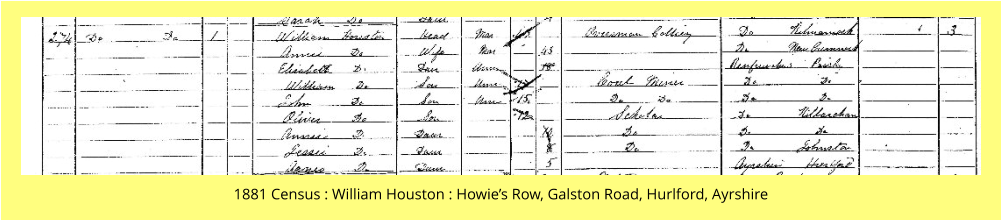 Sarah Do Daur
274 Do Do 1 William Houston Head Mar 45 Oversman Colliery Do Kilmarnock 3
Annie Do Wife Mar 43 Do New Cumnock
Elizabeth D. Daur Unm 18 Renfrewshire Paisley
William Do Son Unm Coal Miner Do Do
John Do Son Unm 15 Do Do Do Do
Oliver Do Son 12 Scholar Do Kilbarchan
Annie D. Daur 10 Do Do Do
Jessie D. Daur 8 Do Do Johnston
Do Daur 5 Ayrshire Hurlford
1881 Census : William Houston : Howie’s Row, Galston Road, Hurlford, Ayrshire